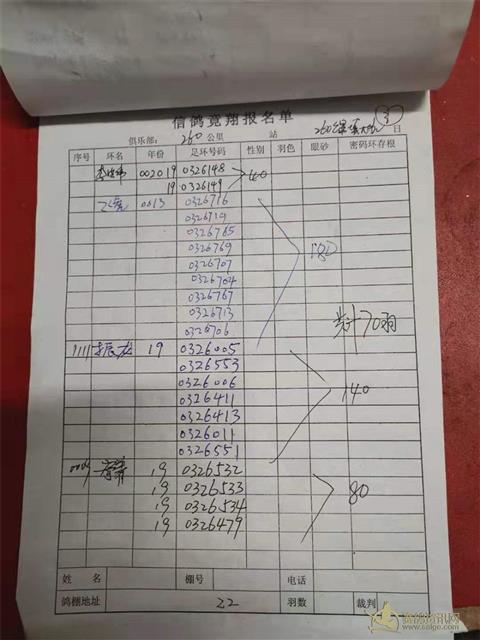 信鸽竞翔报名单
③
俱乐部: 260 公里 站 260 日
序号 环名 年份 足环号码 性别 羽色 眼砂 密码环存根
李 0020 19 0326148 40
19 0326149
0013 0326716
0326719
0326765
0326769 180
0326707
0326704
0326767
0326713 共计70羽
0326706
1111 振 19 0326005
0326553
0326006
0326411 140
0326413
0326011
0326551
0009 19 0326532
19 0326533 80
19 0326534
19 0326479
姓 名 棚号 电话
鸽棚地址 22 羽数 裁判
赛鸽资讯网
www.saige.com